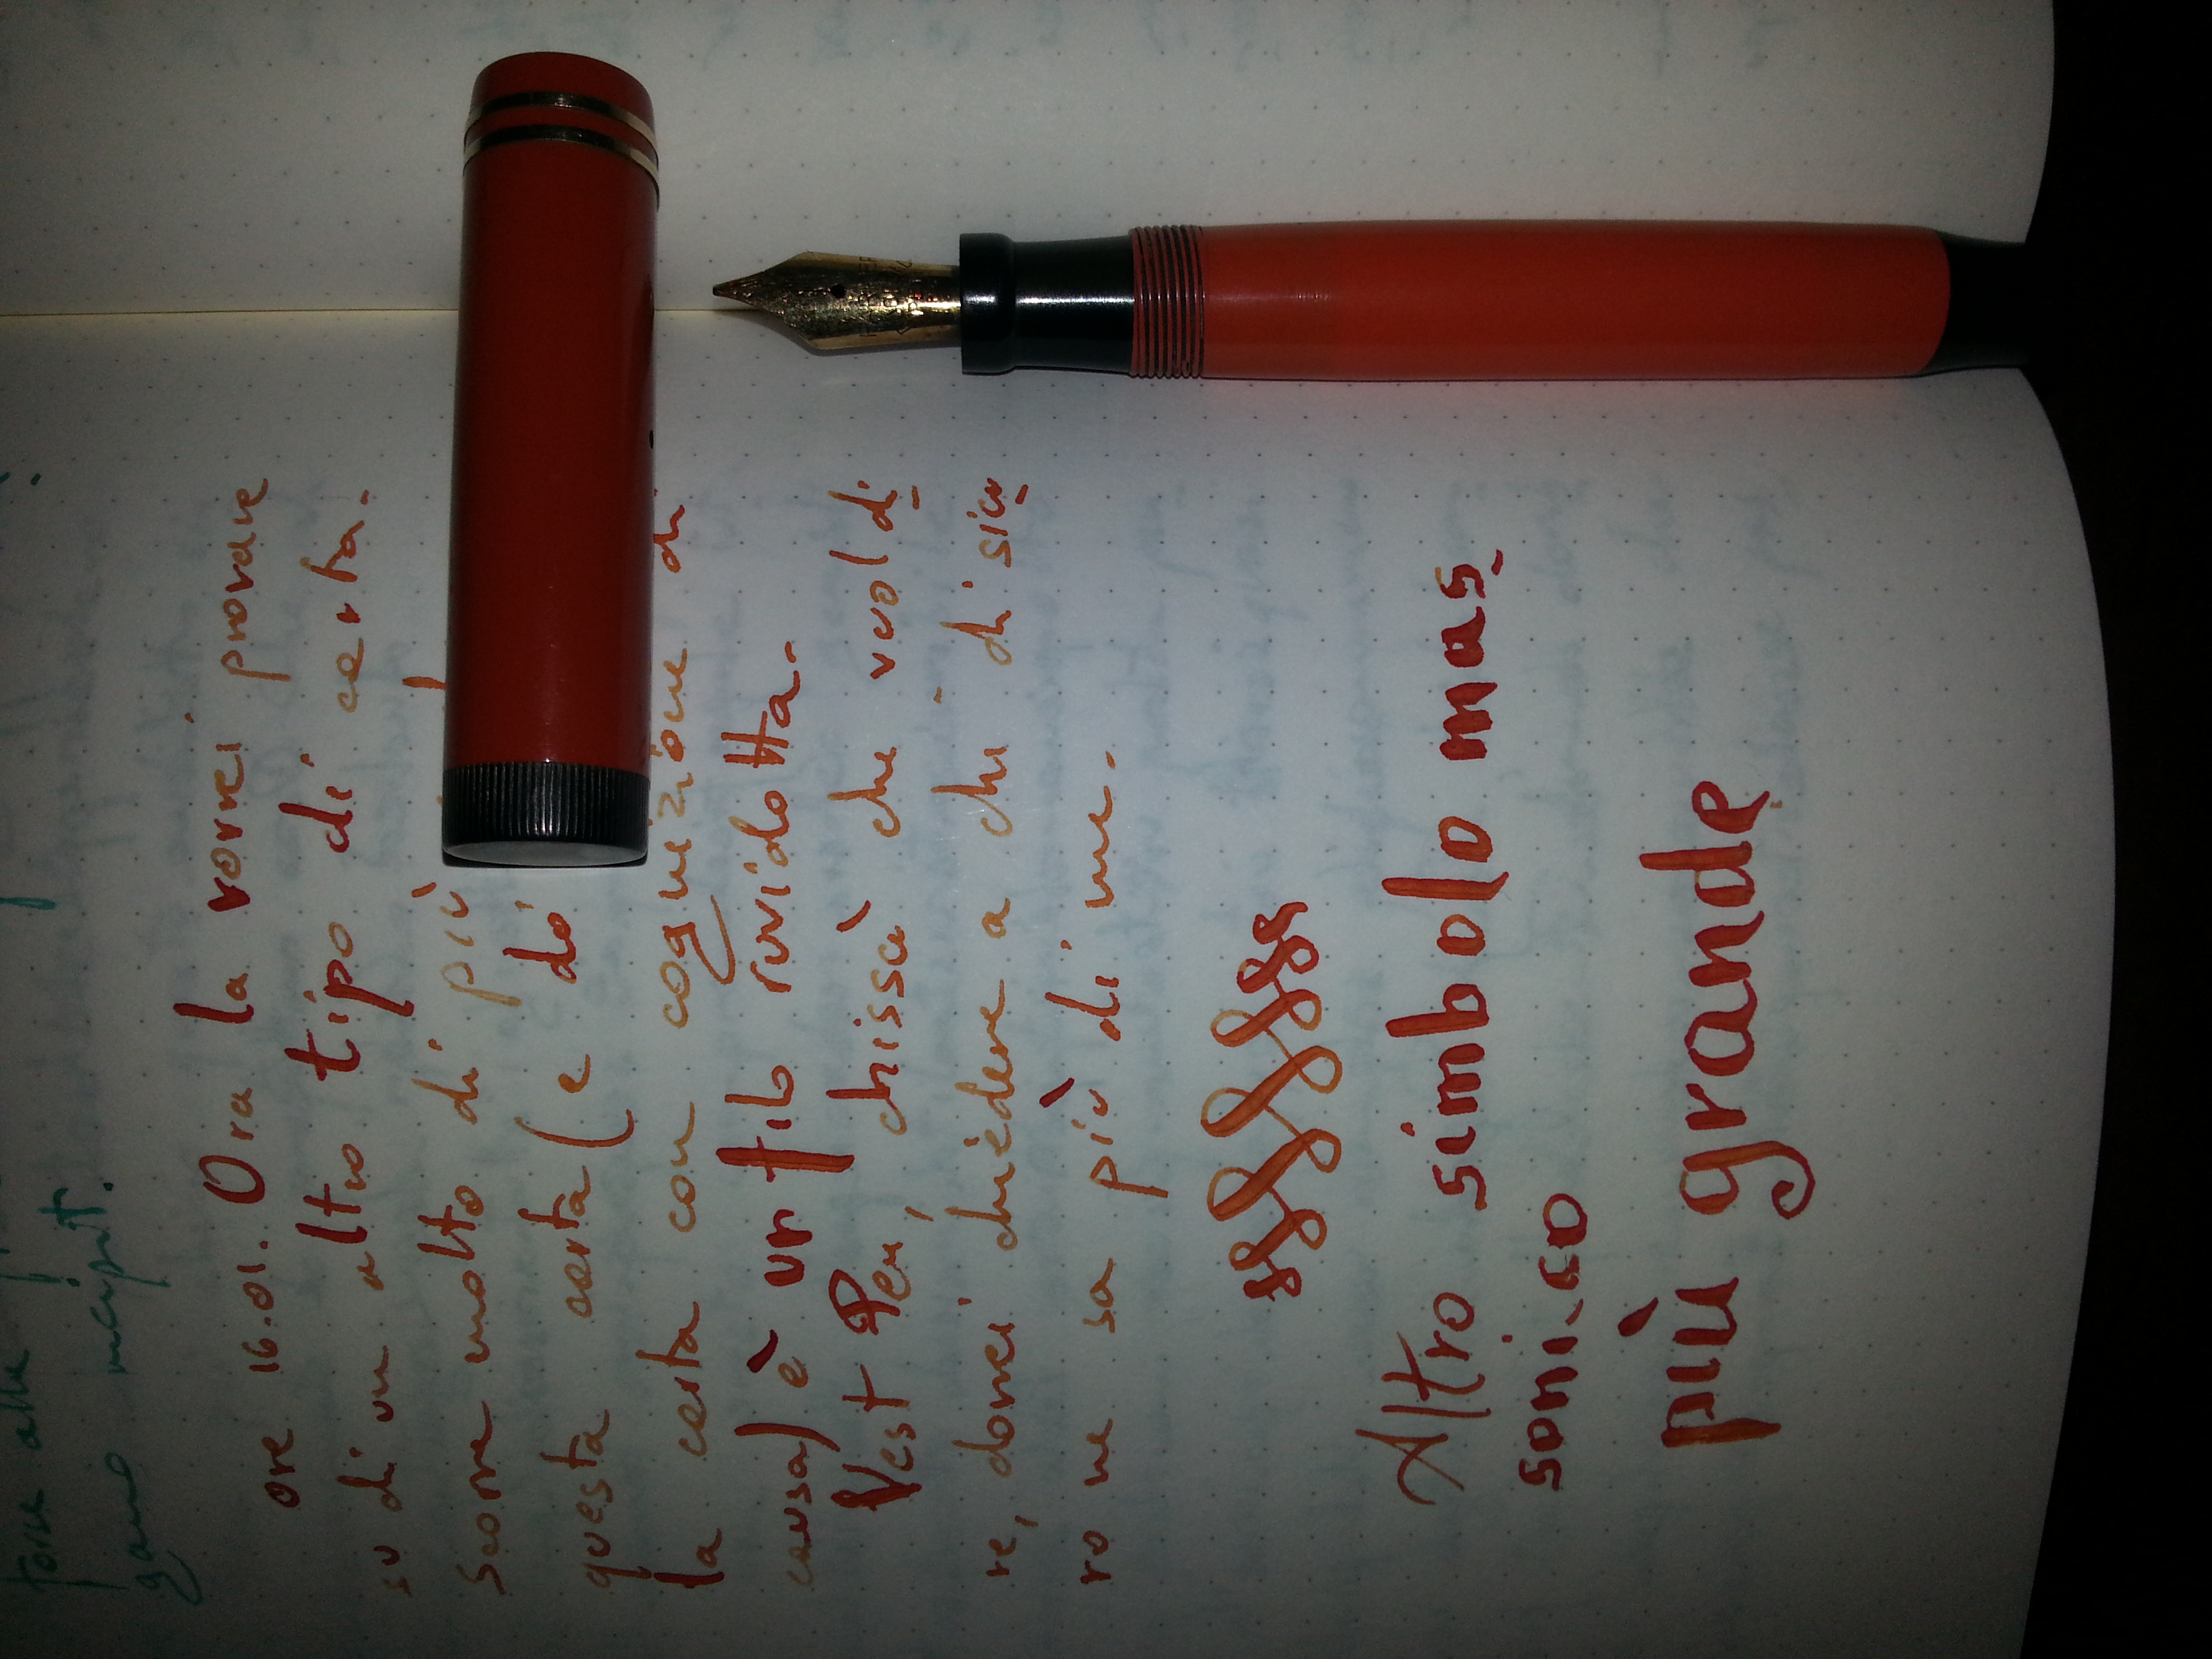 forse alle
gano incipit.
ore 16.01. Ora la vorrei provare
su di un altro tipo di carta.
Scorre molto di più
questa carta (e do
la carta con cognizione di
causa) è un filo ruvidotta.
Vest Pen, chissà che vuol di
re, dovrei chiedere a chi di sicu
ro ne sa più di me.
Altro simbolo mas
sonico
più grande